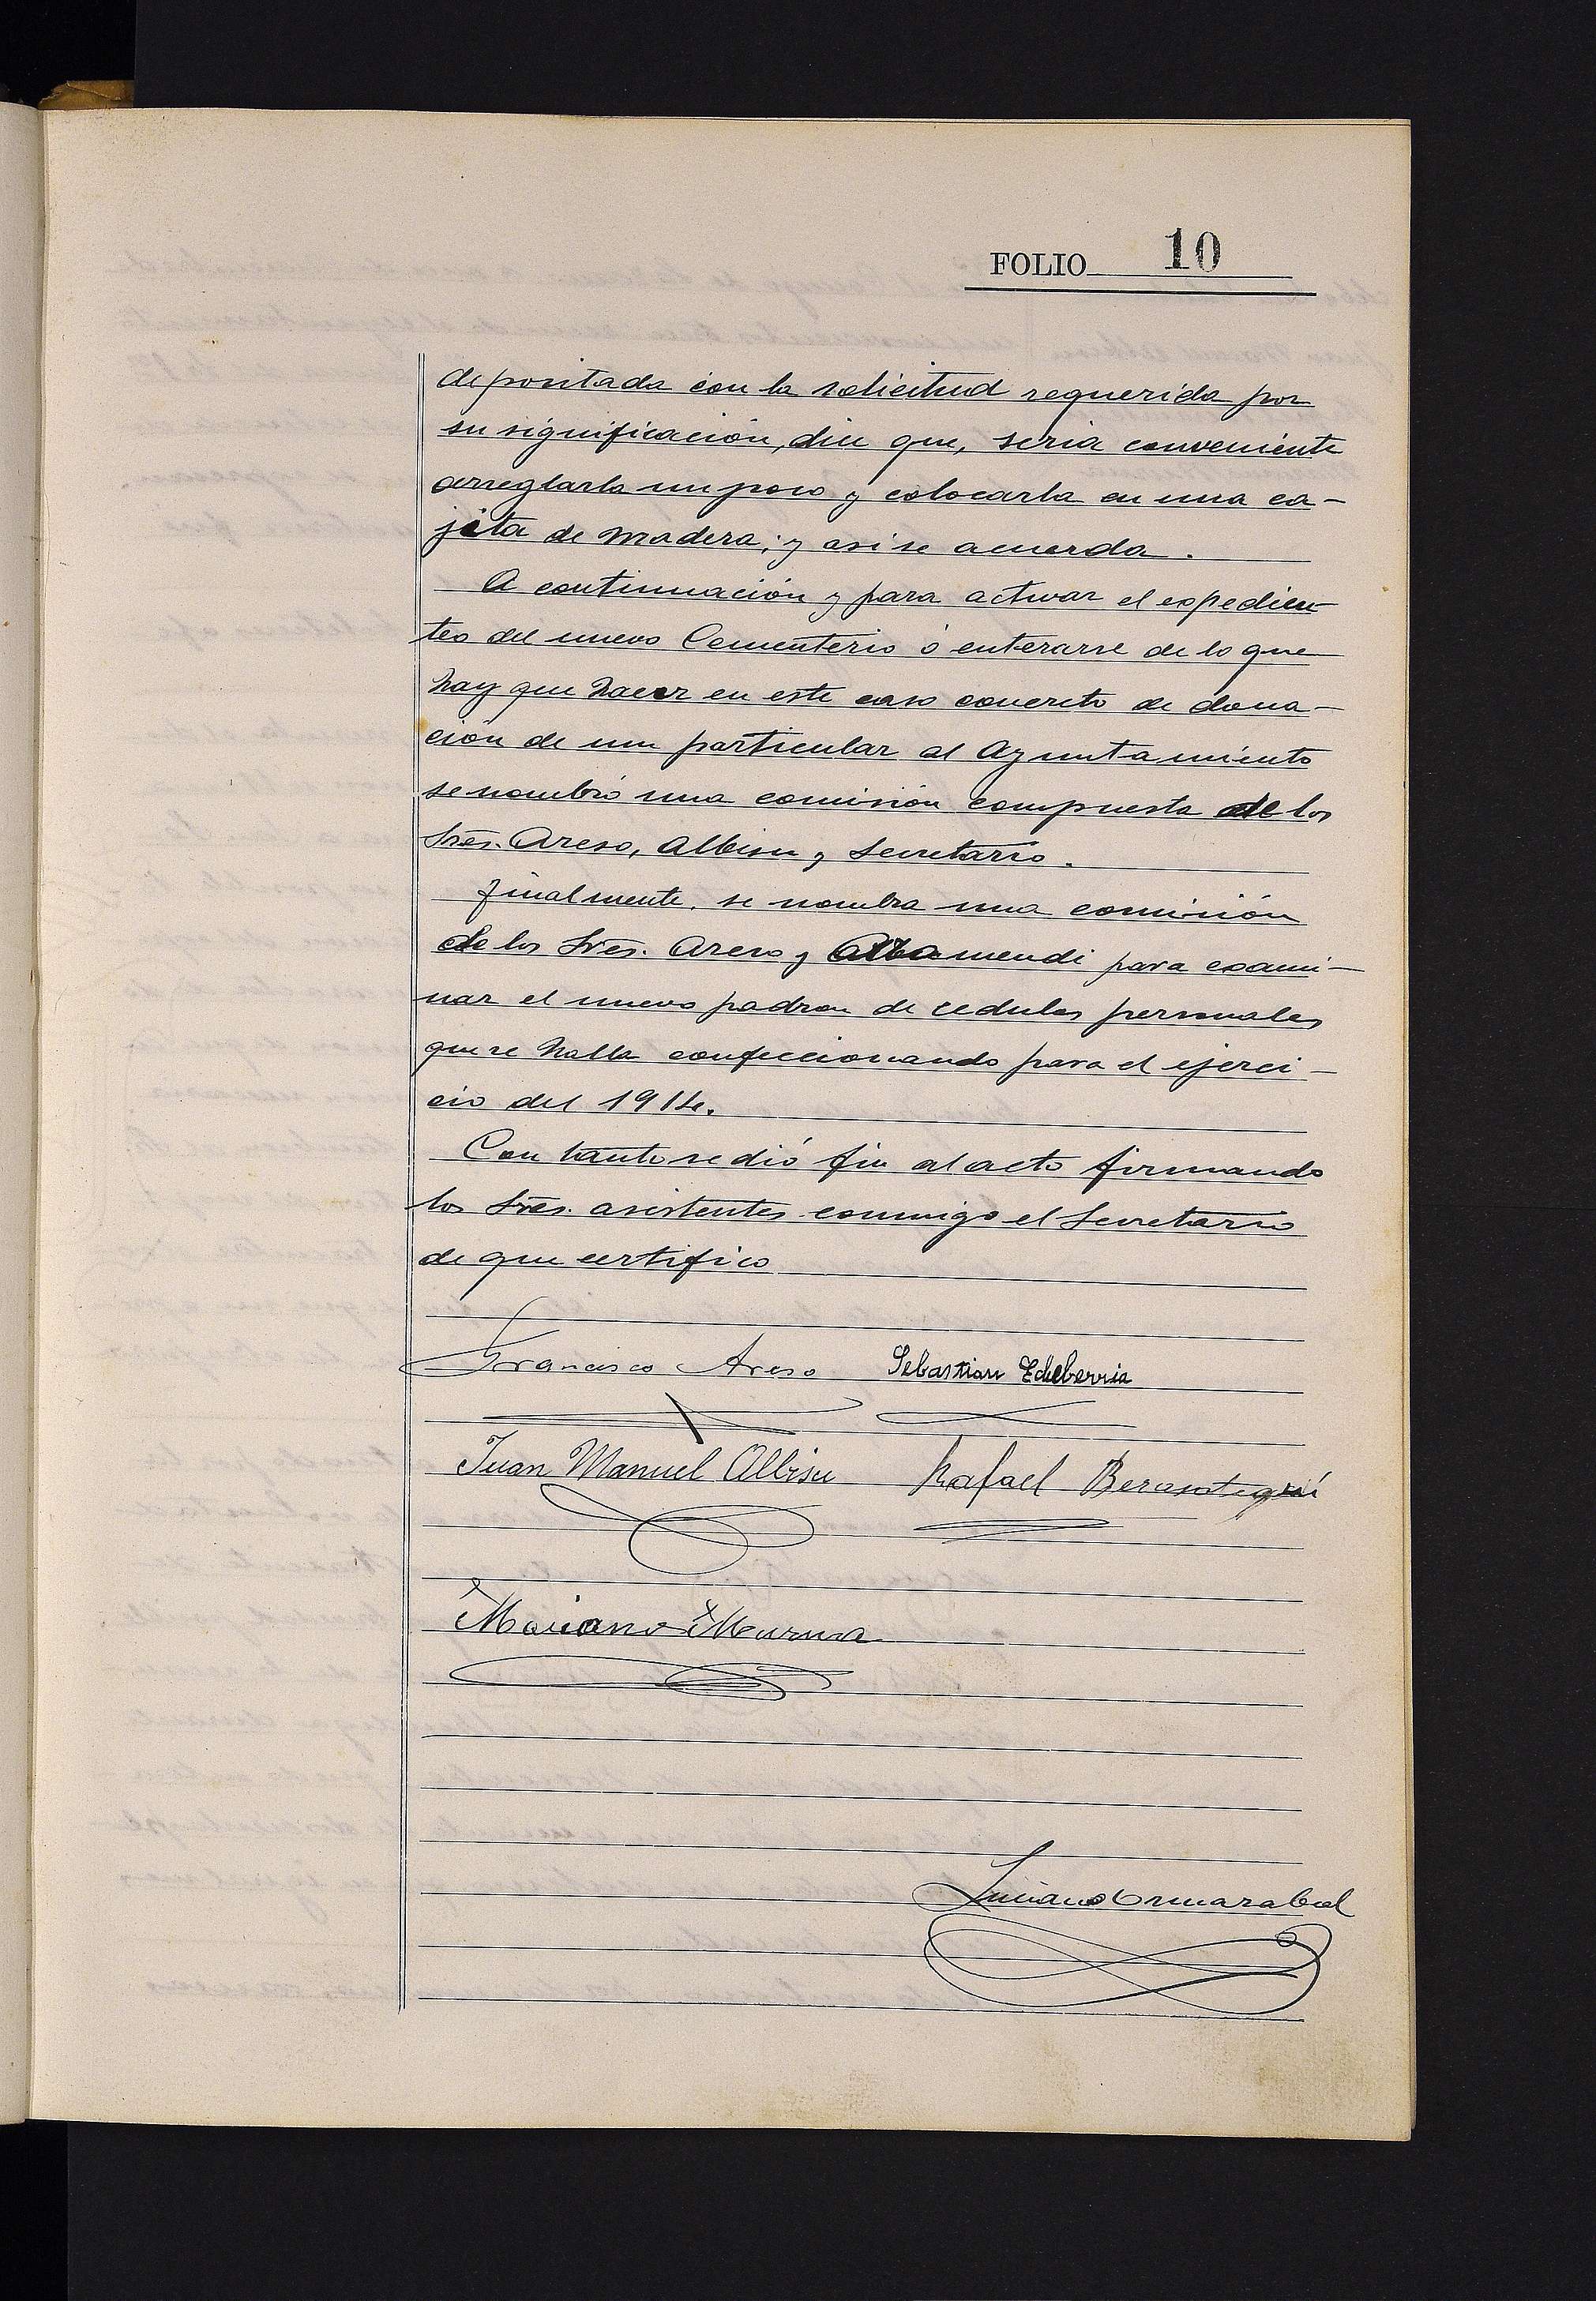 FOLIO 10
depositada con la solicitud requerida por
su significación, dice que, seria conveniente
arreglarla un poco y colocarla en una ca-
jita de madera; y asi se acuerda.
A continuación y para activar el expedien-
teo del nuevo Cementerio ó enterarse de lo que
hay que hacer en este caso concreto de dona-
ción de un particular al Ayuntamiento
se nombró una comisión compuesta de los
Sres. Areso, Albisu y Secretario.
Finalmente, se nombra una comisión
de los Sres. Areso y Arzamendi para exami-
nar el nuevo padron de cedulas personales
que se halla confeccionando para el ejerci-
cio del 1914.
Con tanto se dió fin al acto firmando
los Sres. asistentes conmigo el Secretario
de que certifico
Francisco Areso Sebastian Echeberria
Juan Manuel Albisu Rafael Berasategui
Mariano Murua
Luciano Ormazabal